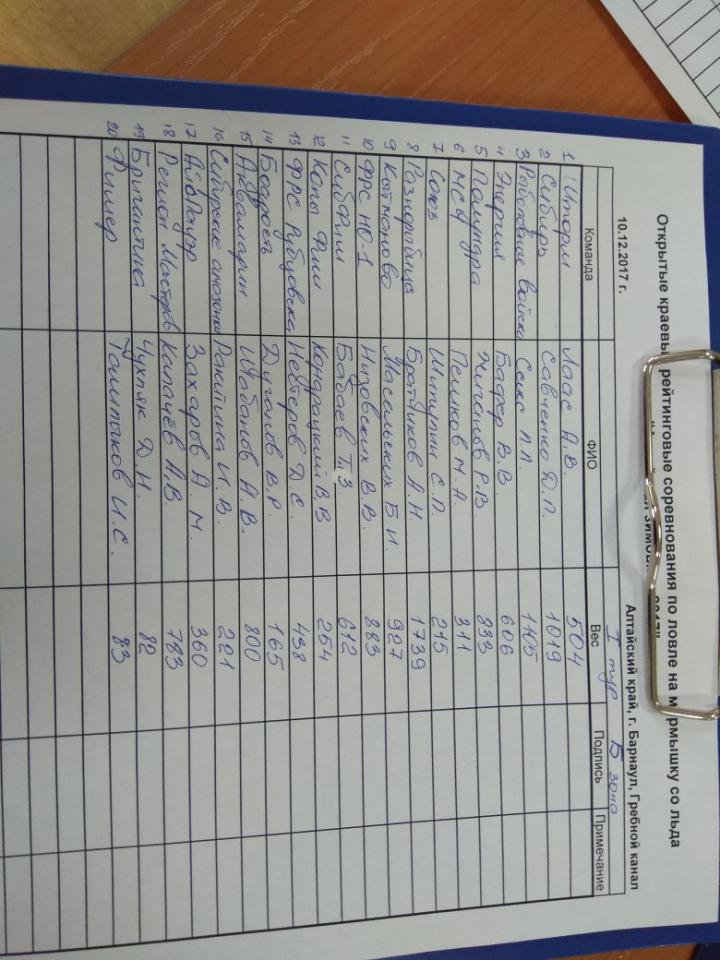 Открытые краевы рейтинговые соревнования по ловле на м рмышку со льда
10.12.2017 г. Алтайский край, г. Барнаул, Гребной канал
I тур Б зона
Команда ФИО Вес Подпись Примечание
1 Шторм Лаас А.В. 504
2 Сибирь Савченко Д.П. 1019
3 Рыболовные войска Секс П.П. 1105
4 Энергия Бадер В.В. 606
5 Полундра Жиганов Р.В 833
6 МСА Пешков М.А 311
7 Союз Шипулин С.П. 215
8 Разноробица Братчиков А.Н. 1739
9 Кытманово Масальских Б.И. 927
10 ФРС НО-1 Низовских В.В. 883
11 СибФиш Бабаев Т.З 612
12 Копы Фиш Кондрацкий В,В 254
13 ФРС Рубцовска Нехтеров Д.С. 438
14 Бодрость Дуганов В.Р. 165
15 Аквамарин Шабанов А.В. 800
16 Сибирские анаконды Ракитина И.В. 221
17 АйдПауэр Захаров А.М. 360
18 Регион Мастеров Капачёв А.В. 783
19 Бригантина Чухпяк Д.Н. 82
20 Фишер Таштыков И.С. 83